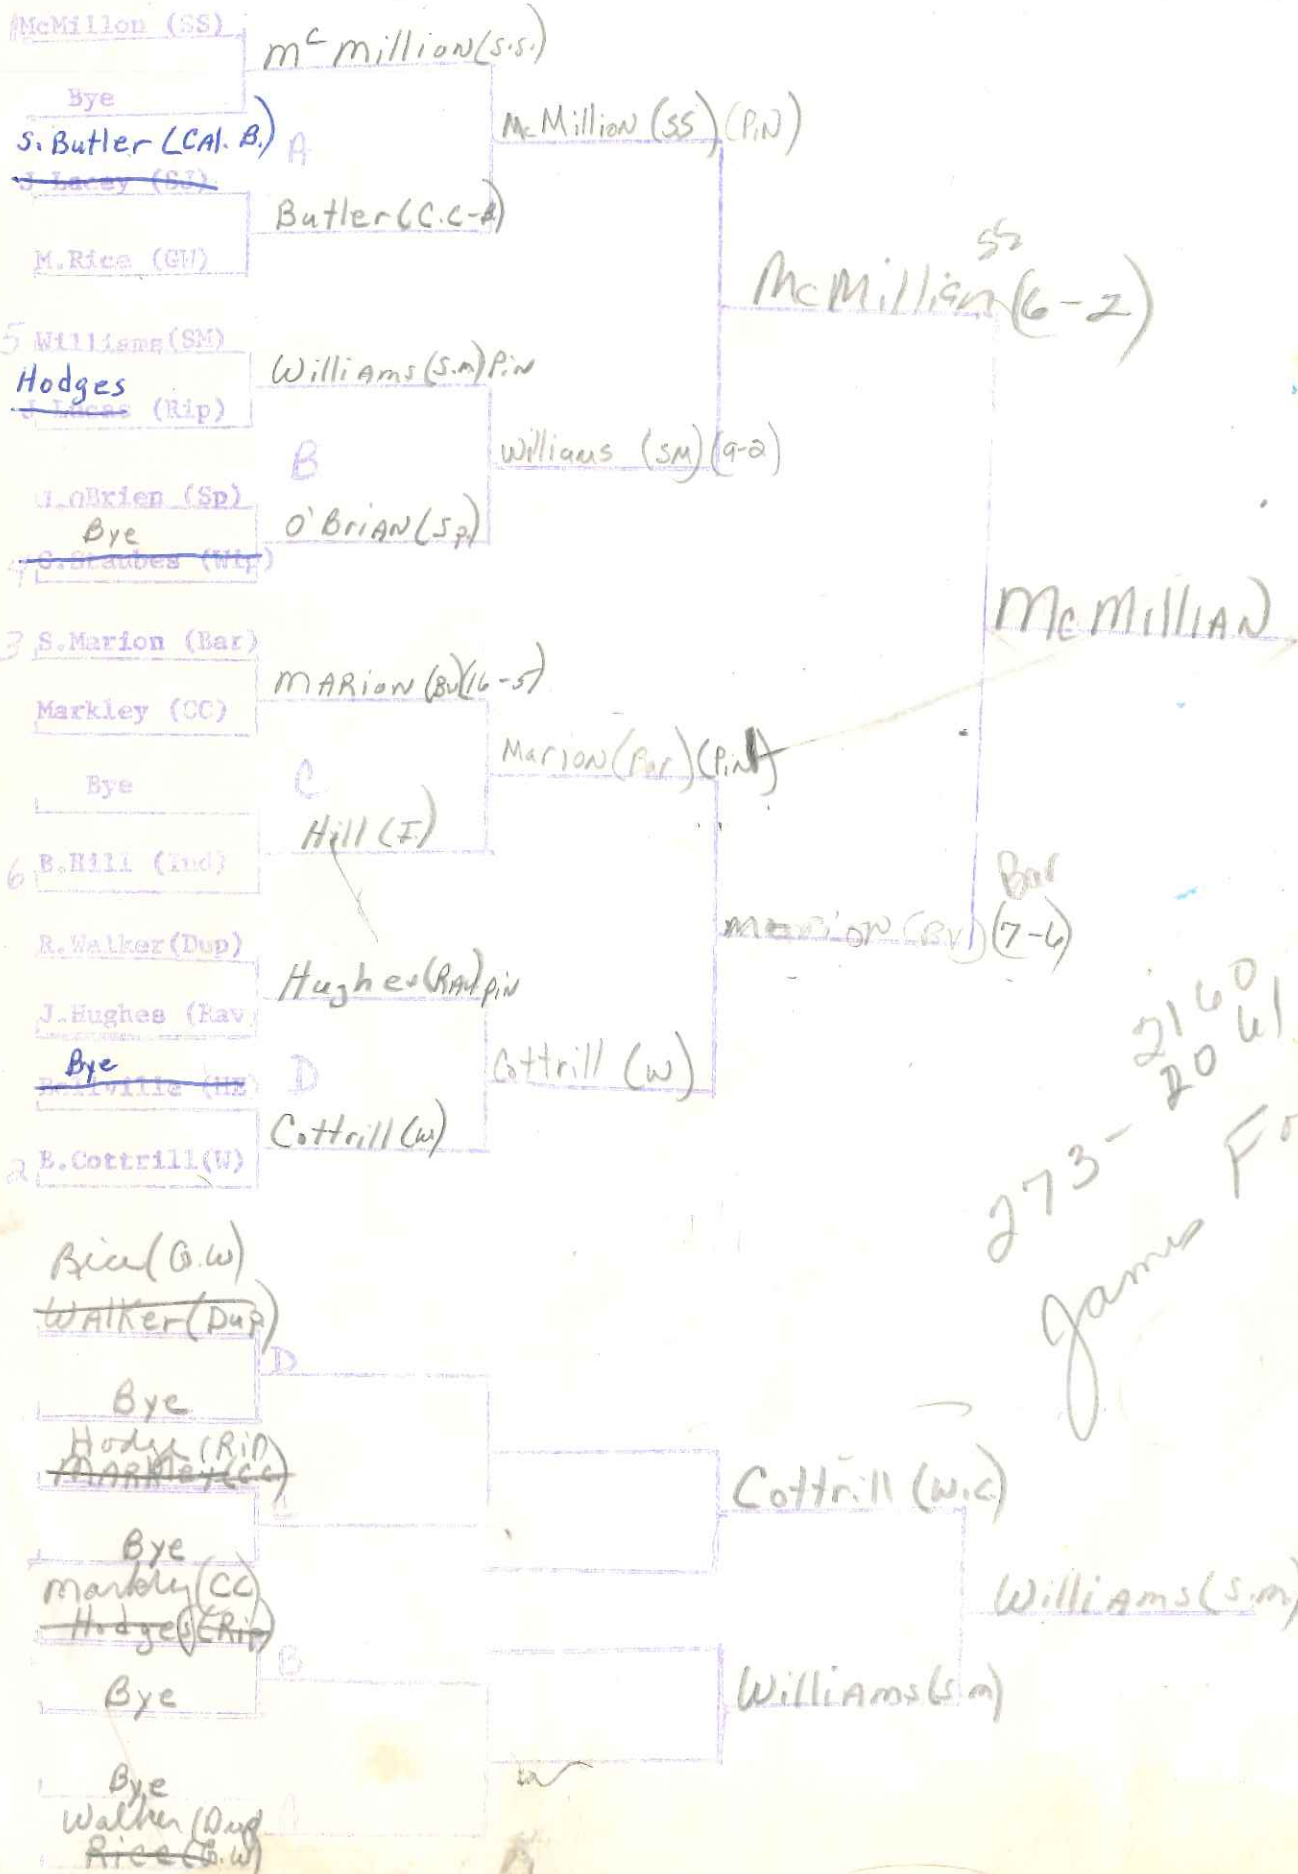 McMillon (SS)
Bye
S. Butler (CAl. B.)
J Lacey (SJ)
M.Rice (GW)
5 Williams(SM)
Hodges
J Lucas (Rip)
J.oBrien (Sp)
Bye
4 C.Staubes (Wip)
3 S.Marion (Bar)
Markley (CC)
Bye
6 B.Hill (Ind)
R.Walker(Dup)
J.Hughes (Rav
Bye
Bellville (HE
2 B.Cottrill(W)
Mc million (S.S.)
A
Butler (C.C-B)
Williams (S.m) PiN
B
O'BriAN (Sp)
MARioN (BU) (16-5)
C
Hill (I)
Hughes (RAV) PiN
D
Cottrill (W)
McMillioN (SS) (PiN)
Williams (SM) (9-2)
Marion (Bar) (PiN)
Cottrill (W)
SS
McMillian (6-2)
Bar
Marion (BV) (7-6)
McMILLIAN
2160
2061
273-
James Fo
Rice (G.W)
WAlker (Dup)
Bye
D
Hodge (Rip)
MARkley (CC)
Bye
C
Markley (CC)
Hodges (Rip)
Bye
B
Bye
Walker (Dup
Rice (G.W)
A
Cottrill (W.C.)
Williams (S.m)
Williams (S.m.)